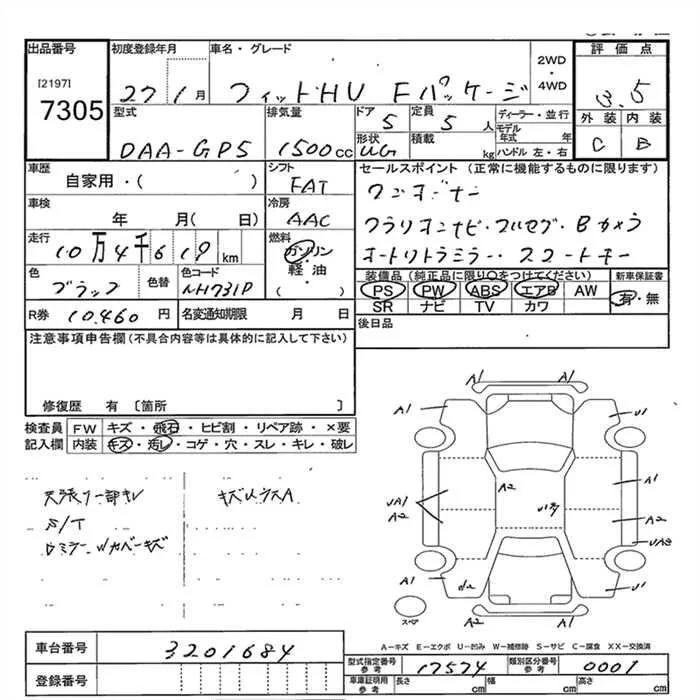 出品番号
[2197]
7305
初度登録年月
27 1月
車名・グレード
フィットHV Fパッケージ
2WD
・
4WD
評価点
3.5
外装 内装
C B
型式
DAA-GP5
排気量
1500cc
ドア
5
定員
5人
ディーラー・並行
モデル年式 年
形状
積載 kg
ハンドル 左・右
車歴
自家用・( )
シフト
FAT
セールスポイント (正常に機能するものに限ります)
ワンオーナー
クラリオンナビ・フルセグ・Bカメラ
オートリトラミラー・スマートキー
車検
年 月( 日)
冷房
AAC
走行
10万4千619km
燃料
ガソリン
・
軽油
( )
色
ブラック
色替
色コード
NH731P
装備品(純正品に限り○をつけてください)
PS PW ABS エアB AW
SR ナビ TV カワ
新車保証書
有・無
R券 10,460円
名変通知期限 月 日
後日品
注意事項申告欄(不具合内容等は具体的に記入して下さい)
修復歴 有 〔箇所 〕
検査員記入欄
FW キズ・飛石・ヒビ割・リペア跡・×要
内装 キズ・汚し・コゲ・穴・スレ・キレ・破レ
S/T
A1
A1 U1
A2
A1
A2
A2
A1 U1
A2 A1
スペア
A-キズ E-エクボ U-凹み W-補修跡 S-サビ C-腐食 XX-交換済
車台番号 3201684
登録番号
型式指定番号 参考 17574
類別区分番号 参考 0001
車庫証明用 参考 長さ cm 幅 cm 高さ cm